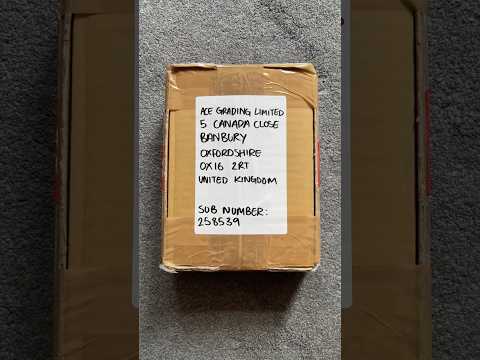 ACE GRADING LIMITED
5 CANADA CLOSE
BANBURY
OXFORDSHIRE
OX16 2RT
UNITED KINGDOM
SUB NUMBER:
258539